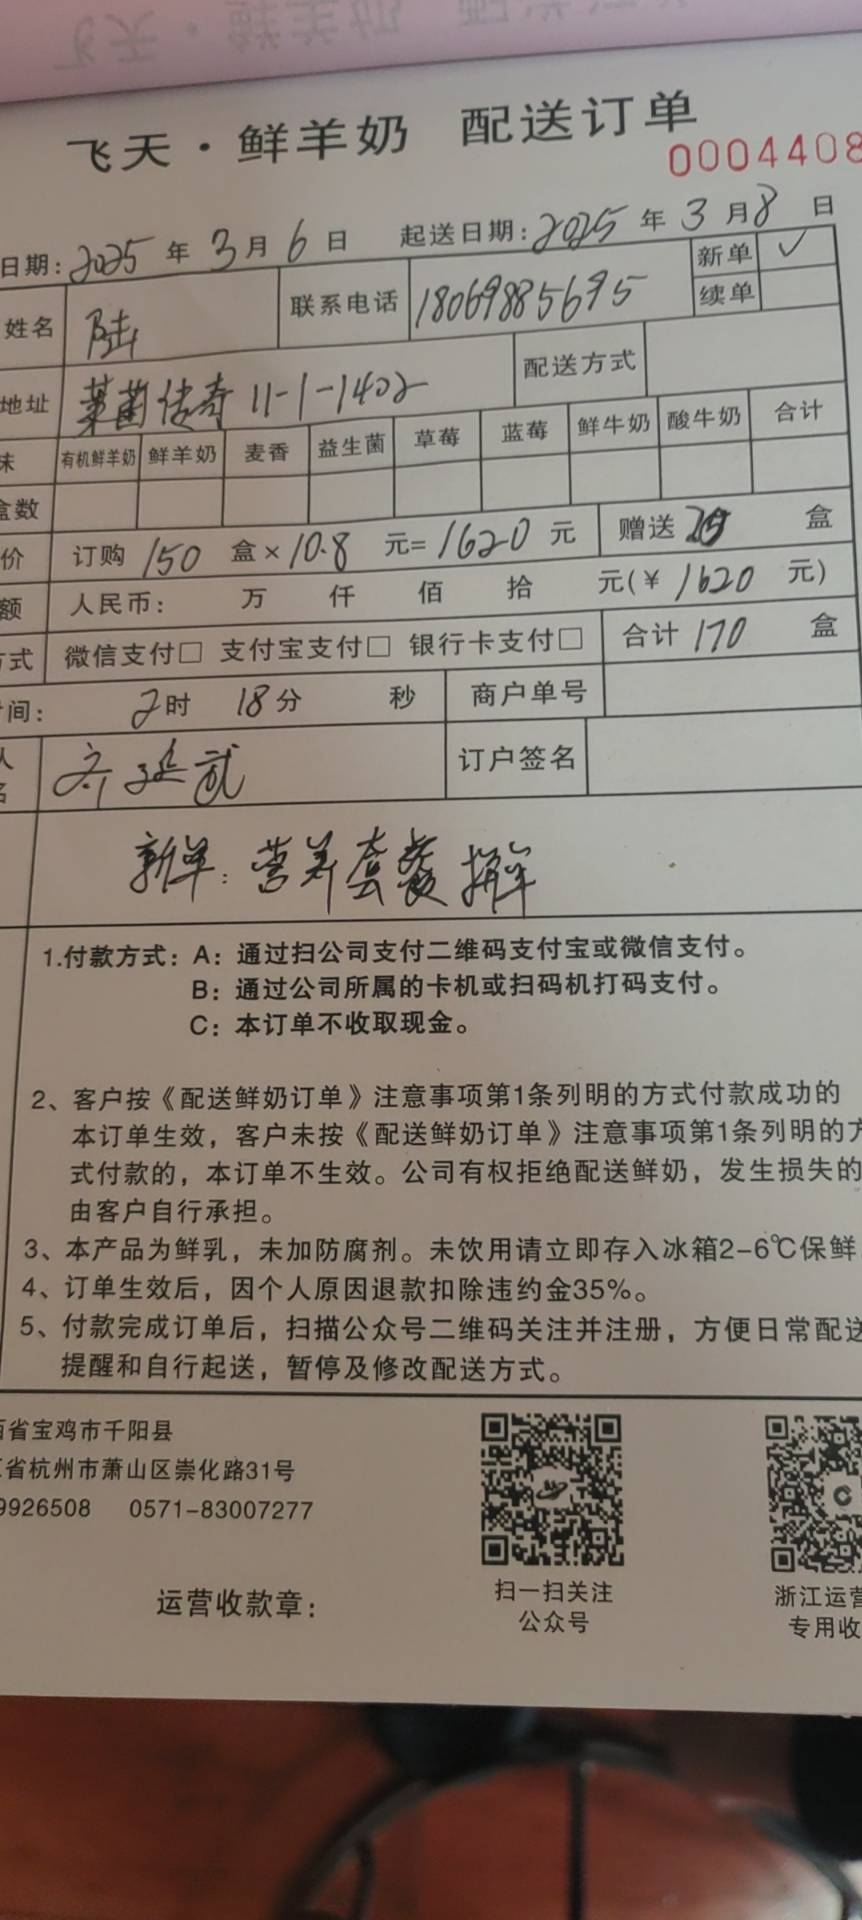 飞天·鲜羊奶 配送订单
0004408
日期: 2025 年 3 月 6 日 起送日期: 2025 年 3 月 8 日
姓名 陆 联系电话 18069885695 新单 ✓
续单
地址 莱茵传奇 11-1-1402 配送方式
味 有机鲜羊奶 鲜羊奶 麦香 益生菌 草莓 蓝莓 鲜牛奶 酸牛奶 合计
盒数
价 订购 150 盒×10.8 元=1620 元 赠送 盒
额 人民币: 万 仟 佰 拾 元(¥ 1620 元)
方式 微信支付□ 支付宝支付□ 银行卡支付□ 合计 170 盒
间: 2时 18分 秒 商户单号
人
名 齐延武 订户签名
新单: 营养套餐 拼单
1.付款方式: A: 通过扫公司支付二维码支付宝或微信支付。
B: 通过公司所属的卡机或扫码机打码支付。
C: 本订单不收取现金。
2、客户按《配送鲜奶订单》注意事项第1条列明的方式付款成功的
本订单生效，客户未按《配送鲜奶订单》注意事项第1条列明的方
式付款的，本订单不生效。公司有权拒绝配送鲜奶，发生损失的
由客户自行承担。
3、本产品为鲜乳，未加防腐剂。未饮用请立即存入冰箱2-6℃保鲜
4、订单生效后，因个人原因退款扣除违约金35%。
5、付款完成订单后，扫描公众号二维码关注并注册，方便日常配送
提醒和自行起送，暂停及修改配送方式。
省宝鸡市千阳县
省杭州市萧山区崇化路31号
9926508 0571-83007277
扫一扫关注
公众号
浙江运营
专用收
运营收款章: